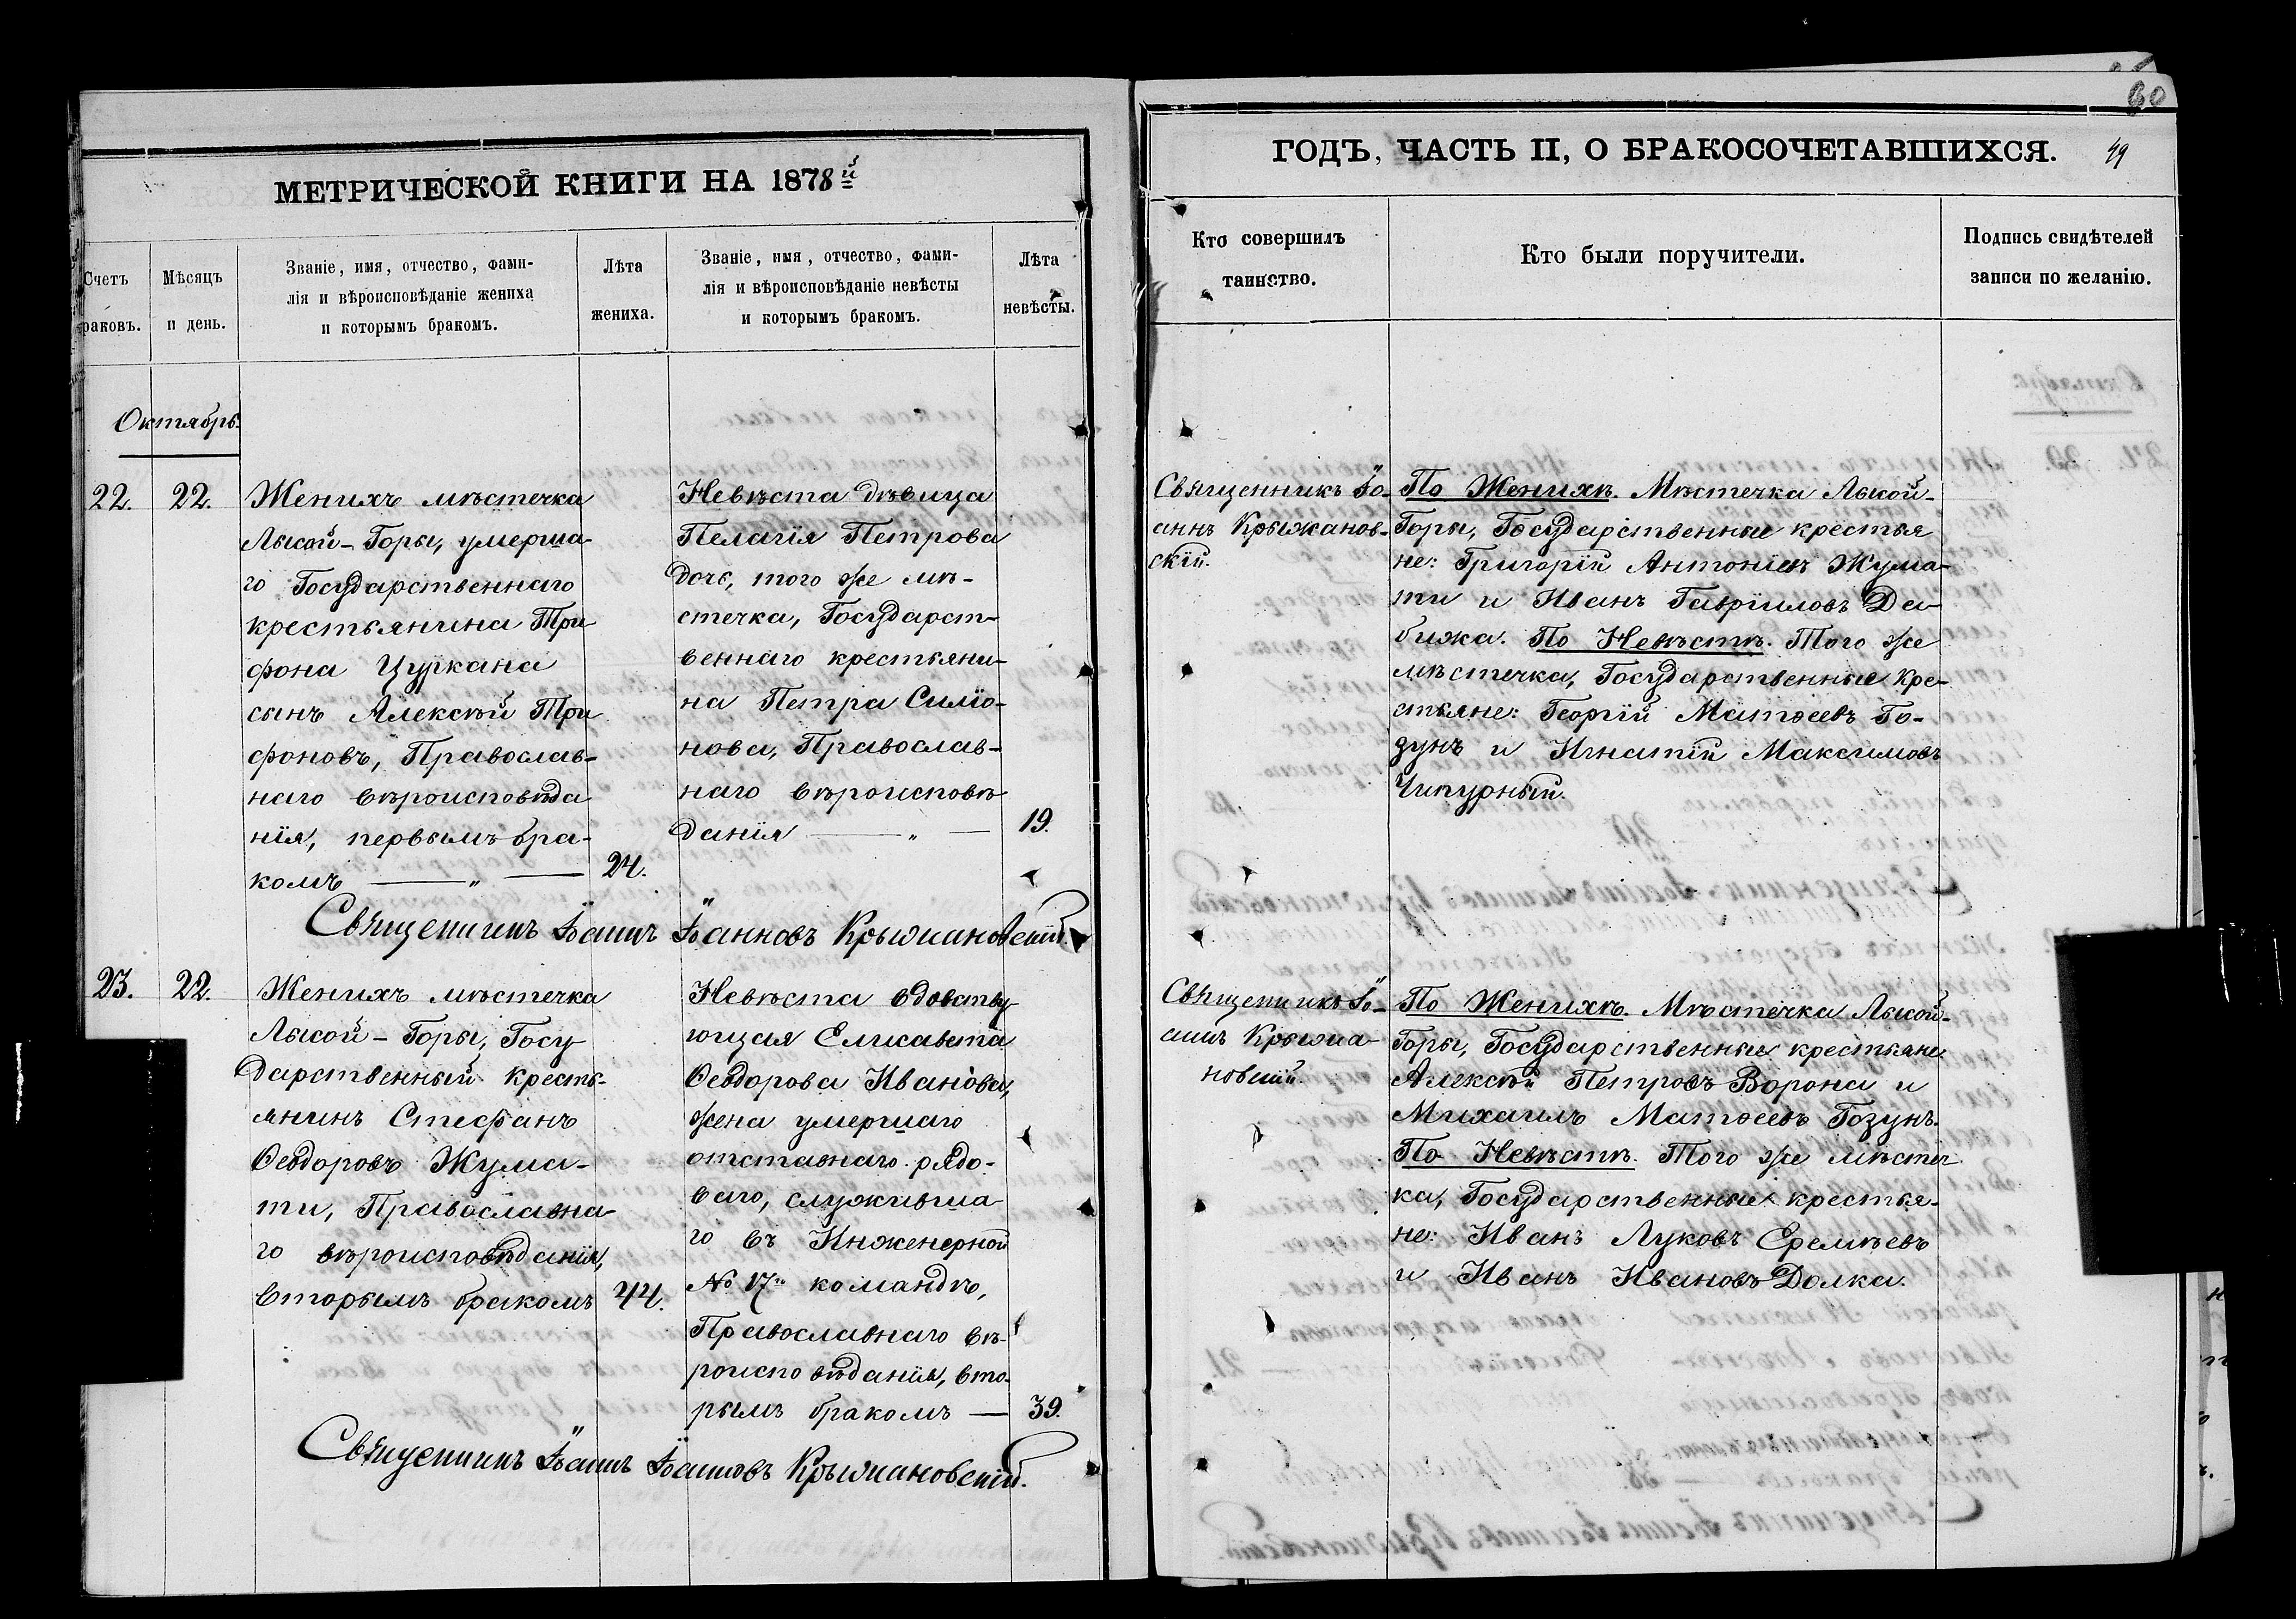 60
МЕТРИЧЕСКОЙ КНИГИ НА 1878й
ГОДЪ, ЧАСТЬ II, О БРАКОСОЧЕТАВШИХСЯ. 49
Счетъ
раковъ.
Мѣсяцъ
и день.
Званіе, имя, отчество, фами-
лія и вѣроисповѣданіе жениха
и которымъ бракомъ.
Лѣта
жениха.
Званіе, имя, отчество, фами-
лія и вѣроисповѣданіе невѣсты
и которымъ бракомъ.
Лѣта
невѣсты.
Кто совершилъ
таинство.
Кто были поручители.
Подпись свидѣтелей
записи по желанію.
Октябрь.
22. 22.
Женихъ мѣстечка
Лысой-Горы, умерша
го Государственнаго
крестьянина Три
фона Цуркана
сынъ Алексѣй Три
фоновъ, Православ-
наго вѣроисповѣда
нія, первымъ бра-
комъ — „ —
24.
Невѣста дѣвица
Пелагія Петрова
дочь, того же мѣ-
стечка, Государст-
веннаго крестьяни-
на Петра Симіо-
нова, Православ-
наго вѣроисповѣ
данія — „ —
19.
Священникъ Іо-
аннъ Крыжанов-
скій.
По Женихѣ. Мѣстечка Лысой-
Горы, Государственные крестья
не: Григорій Антоніевъ Жума-
ти и Иванъ Гавріиловъ Да-
бижа. По Невѣстѣ. Того же
мѣстечка, Государственные Кре-
стьяне: Георгій Матѳеевъ Го-
зунъ и Игнатій Максимовъ
Чипурный.
Священникъ Іоаннъ Іоанновъ Крыжановскій.
23. 22.
Женихъ мѣстечка
Лысой-Горы, Госу
дарственный кресть-
янинъ Стефанъ
Ѳеодоровъ Жума-
ти, Православна-
го вѣроисповѣданія,
вторымъ бракомъ
44.
Невѣста вдовству
ющая Елисавета
Ѳеодорова Иванова,
жена умершаго
отставнаго рядо-
ваго, служивша
го въ Инженерной
№ 17й командѣ,
Православнаго вѣ-
роисповѣданія, вто-
рымъ бракомъ —
39.
Священникъ Іо-
аннъ Крыжа-
новскій.
По Женихѣ. Мѣстечка Лысой-
Горы, Государственные крестьяне
Алексѣй Петровъ Ворона и
Михаилъ Матѳеевъ Гозунъ.
По Невѣстѣ. Того же мѣстеч
ка, Государственные крестья-
не: Иванъ Луковъ Еремѣевъ
и Иванъ Ивановъ Долка.
Священникъ Іоаннъ Іоанновъ Крыжановскій.